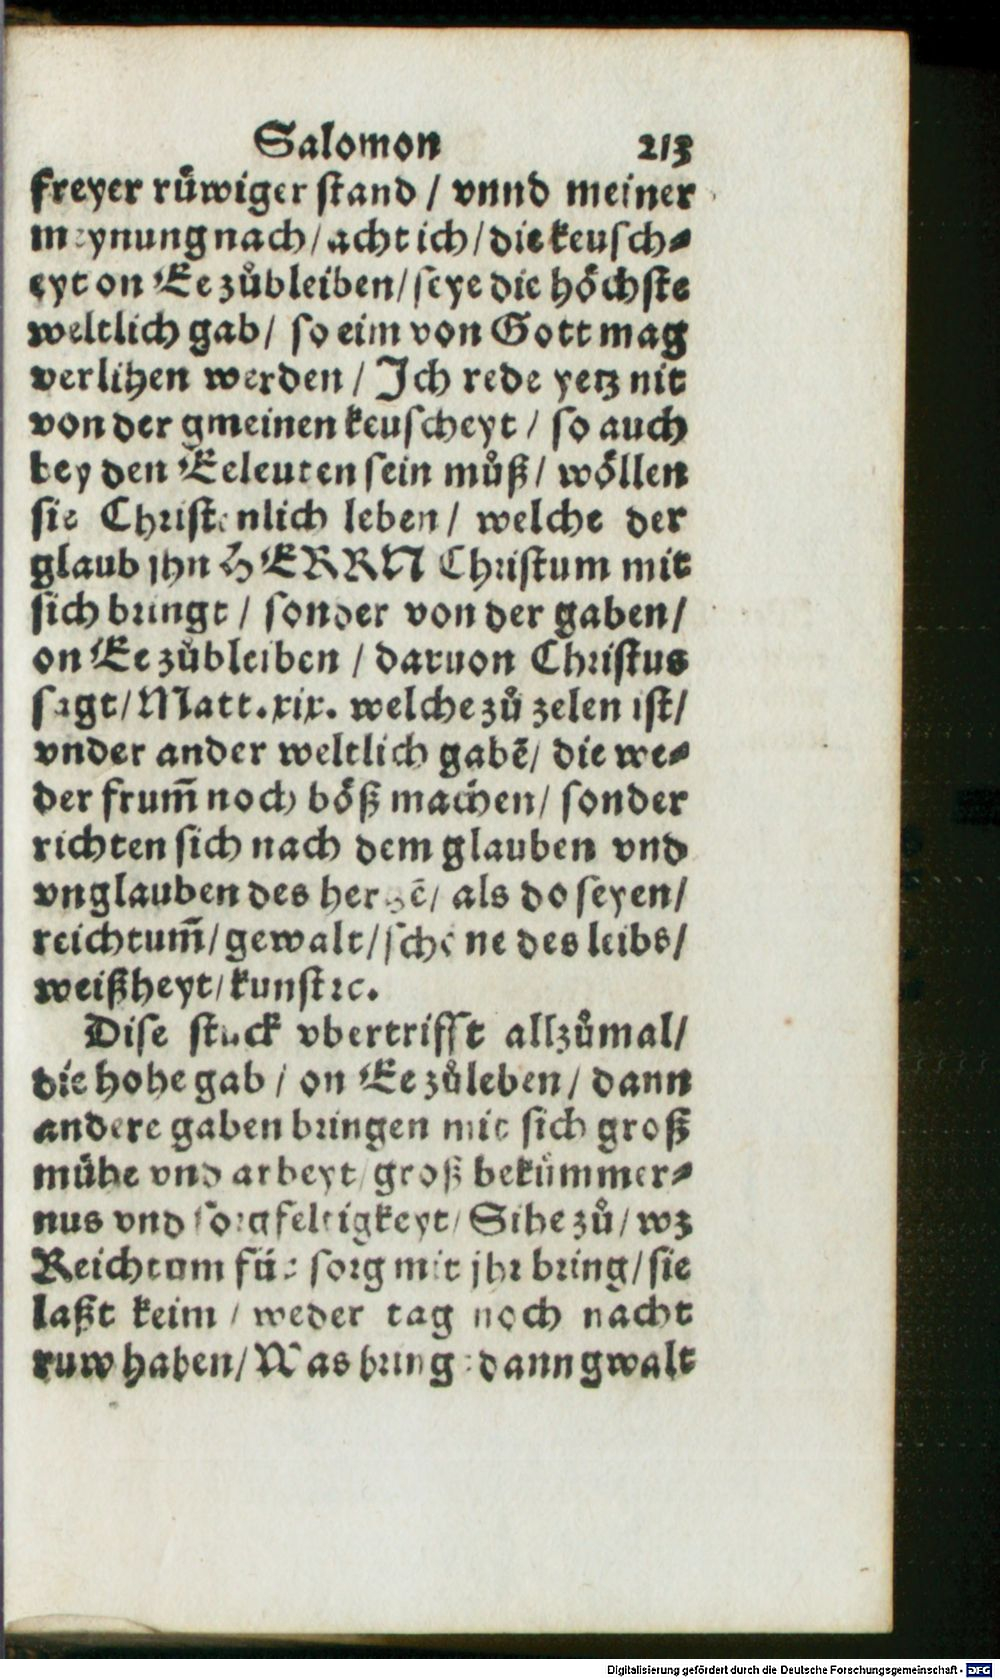 Salomon 213
freyer rüwiger stand / vnnd meiner
meynung nach / acht ich / die keusch⸗
eyt on Ee zůbleiben / seye die höchste
weltlich gab / so eim von Gott mag
verlihen werden / Ich rede yetz nit
von der gmeinen keuscheyt / so auch
bey den Eeleuten sein můß / wöllen
sie Christenlich leben / welche der
glaub jhn HERRN Christum mit
sich bringt / sonder von der gaben /
on Ee zůbleiben / daruon Christus
sagt / Matt. xix. welche zů zelen ist /
vnder ander weltlich gabē / die we⸗
der frum̃ noch böß machen / sonder
richten sich nach dem glauben vnd
vnglauben des herzē / als do seyen /
reichtum̃ / gewalt / schöne des leibs /
weißheyt / kunst ꝛc.
Dise stuck vbertrifft allzůmal /
die hohe gab / on Ee zůleben / dann
andere gaben bringen mit sich groß
mühe vnd arbeyt / groß bekümmer⸗
nus vnd sorgfeltigkeyt / Sihe zů / wz
Reichtum für sorg mit jhr bring / sie
laßt keim / weder tag noch nacht
ruw haben / Was bringt dann gwalt
Digitalisierung gefördert durch die Deutsche Forschungsgemeinschaft - DFG